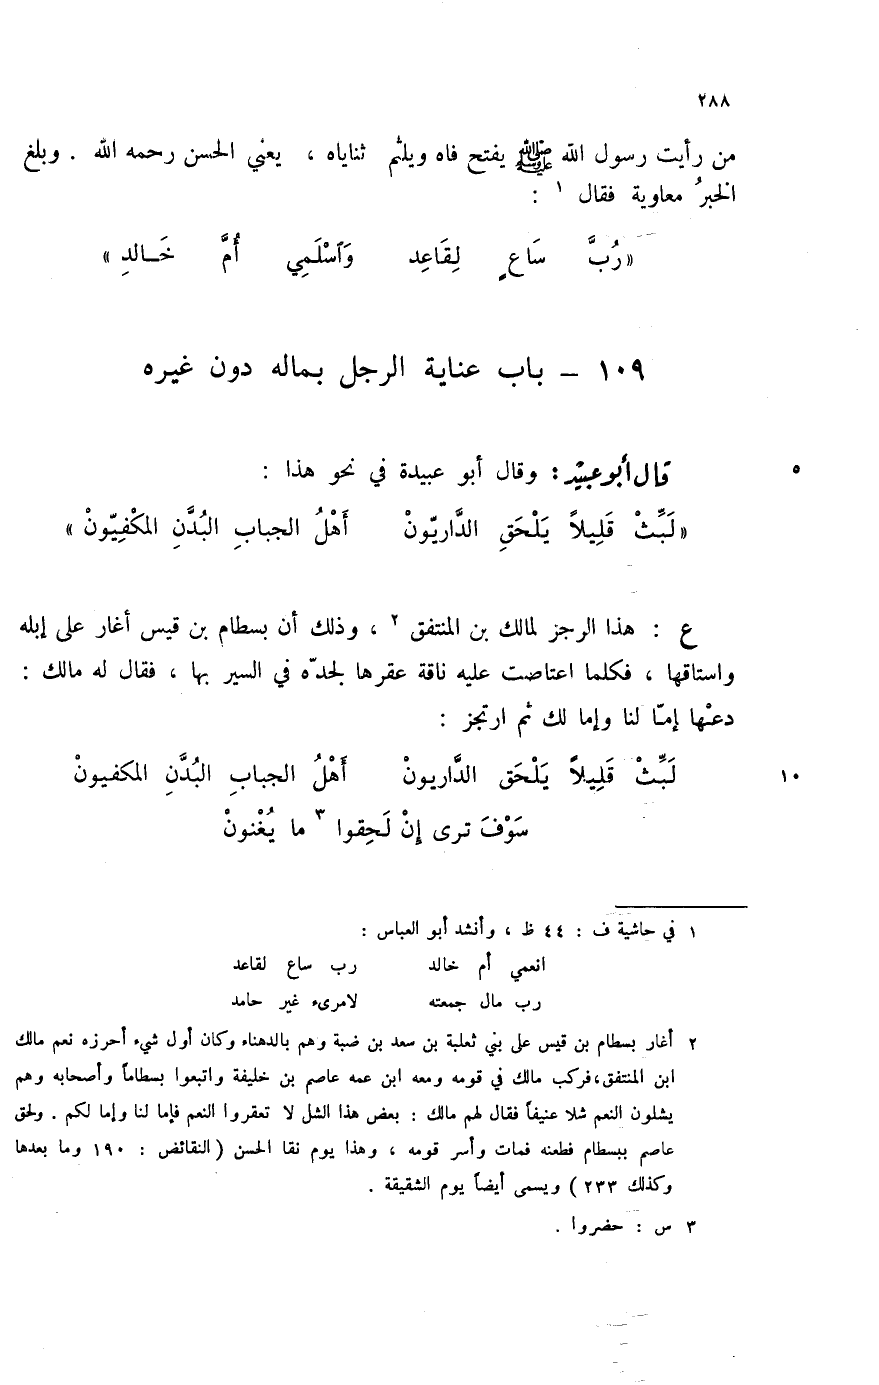 ٢٨٨
من رأيت رسول الله ﷺ يفتح فاه ويلثم ثناياه ، يعني الحسن رحمه الله . وبلغ
الخبرُ معاوية فقال ١ :
« رُبَّ سَاعٍ لِقَاعِد وَٱسْلَمِي أُمَّ خَـالدِ »
١٠٩ – باب عناية الرجل بماله دون غيره
٥
قال أبو عبيد : وقال أبو عبيدة في نحو هذا :
« لَبِّثْ قَلِيلاً يَلْحَقِ الدَّاريّونْ أَهْلُ الجبابِ البُدَّنِ المكْفِيّونْ »
ع : هذا الرجز لمالك بن المنتفق ٢ ، وذلك أن بسطام بن قيس أغار على إبله
واستاقها ، فكلما اعتاصت عليه ناقة عقرها لجدّه في السير بها ، فقال له مالك :
دعْها إمّا لنا وإما لك ثم ارتجز :
١٠
لَبِّثْ قَلِيلاً يَلْحَق الدَّاريونْ أَهْلُ الجبابِ البُدَّنِ المكفيونْ
سَوْفَ ترى إنْ لَحِقوا ٣ ما يُغْنونْ
١ في حاشية ف : ٤٤ ظ ، وأنشد أبو العباس :
انعمي أم خالد رب ساع لقاعد
رب مال جمعته لامرىء غير حامد
٢ أغار بسطام بن قيس على بني ثعلبة بن سعد بن ضبة وهم بالدهناء وكان أول شيء أحرزه نعم مالك
ابن المنتفق،فركب مالك في قومه ومعه ابن عمه عاصم بن خليفة واتبعوا بسطاماً وأصحابه وهم
يشلون النعم شلا عنيفاً فقال لهم مالك : بعض هذا الشل لا تعقروا النعم فإما لنا وإما لكم . ولحق
عاصم ببسطام فطعنه فمات وأسر قومه ، وهذا يوم نقا الحسن (النقائض : ١٩٠ وما بعدها
وكذلك ٢٣٣ ) ويسمى أيضاً يوم الشقيقة .
٣ س : حضروا .